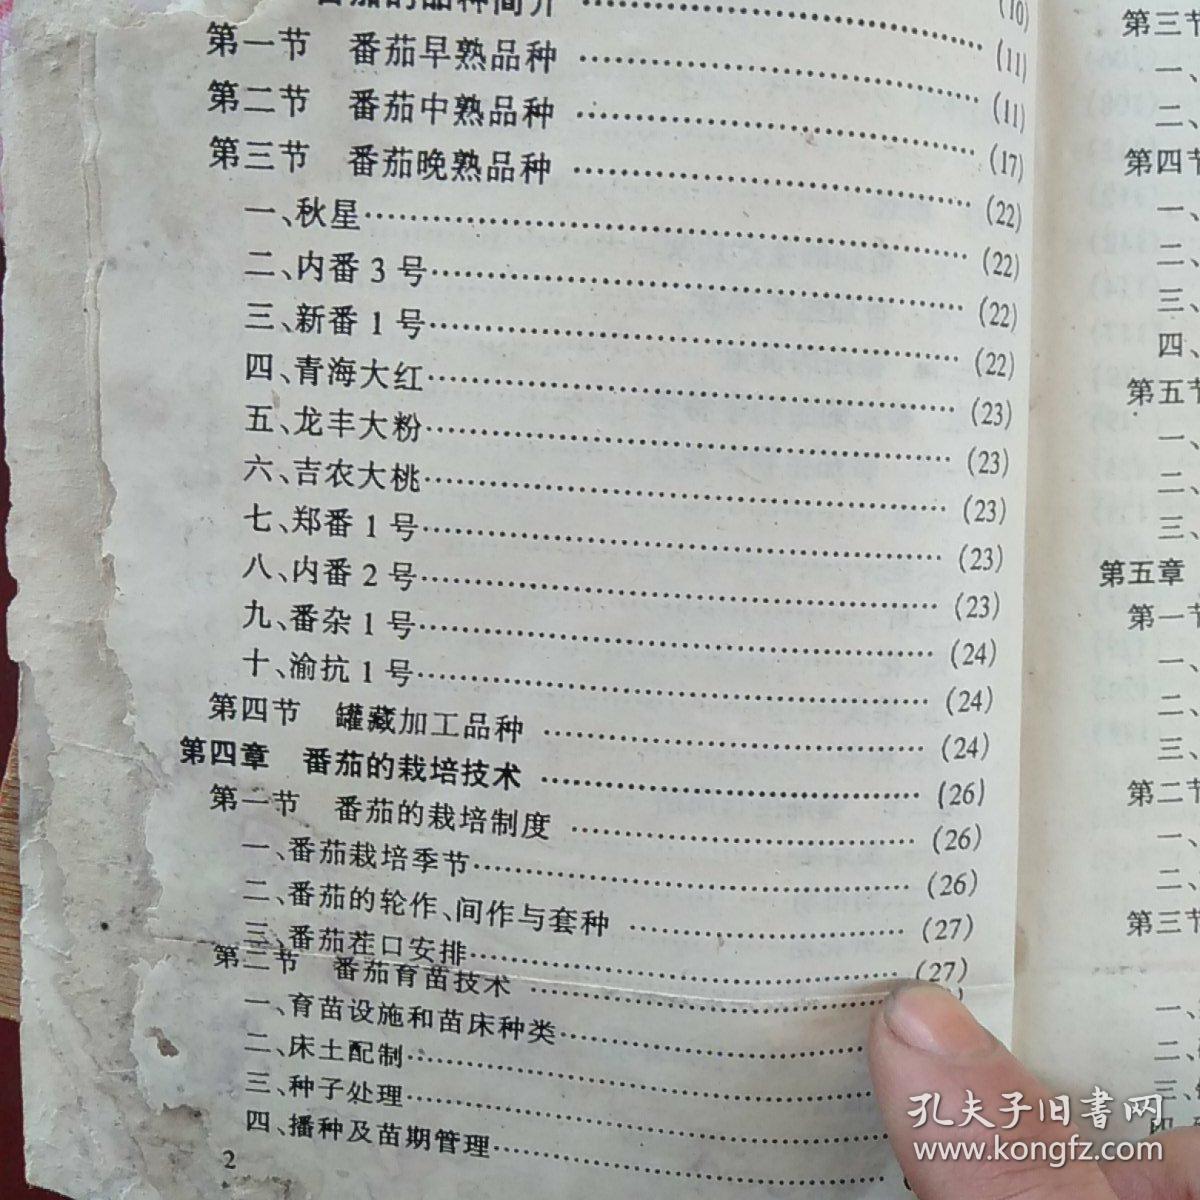 (10)
番茄的品种简介 …………………………(11)
第一节 番茄早熟品种 …………………………(11)
第二节 番茄中熟品种 …………………………(17)
第三节 番茄晚熟品种 …………………………(22)
一、秋星…………………………(22)
二、内番3号…………………………(22)
三、新番1号…………………………(22)
四、青海大红…………………………(23)
五、龙丰大粉…………………………(23)
六、吉农大桃…………………………(23)
七、郑番1号…………………………(23)
八、内番2号…………………………(23)
九、番杂1号…………………………(24)
十、渝抗1号…………………………(24)
第四节 罐藏加工品种 …………………………(24)
第四章 番茄的栽培技术 …………………………(26)
第一节 番茄的栽培制度 …………………………(26)
一、番茄栽培季节…………………………(26)
二、番茄的轮作、间作与套种 …………………………(27)
三、番茄茬口安排…………………………(27)
第二节 番茄育苗技术 …………………………
一、育苗设施和苗床种类…………………………
二、床土配制…………………………
三、种子处理…………………………
四、播种及苗期管理…………………………
2
第三节
一、
二、
第四节
一、
二、
三、
四、
第五节
一、
二、
三、
第五章
第一节
一、
二、
三、
第二节
一、
二、
第三节
一、
二、
三、
孔夫子旧书网
www.kongfz.com